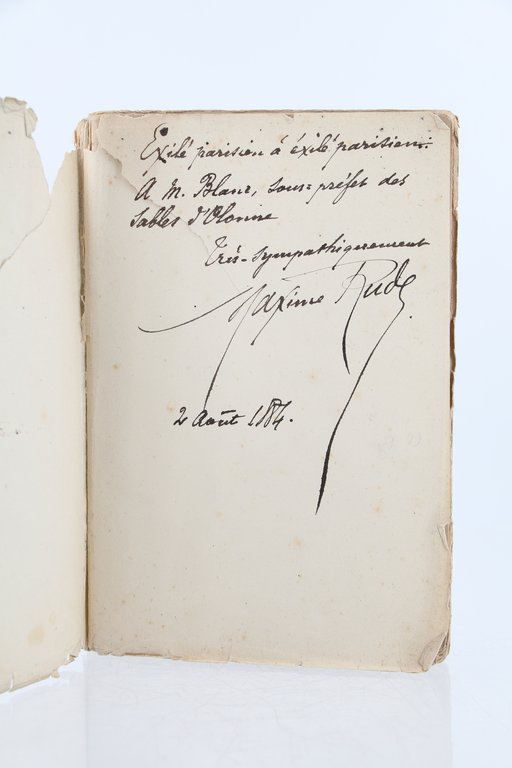 Exilé parisien à éxilé parisien.
A M. Blanc, sous-préfet des
Sables d'Olonne
Très-sympathiquement
Maxime Rude.
2 Août 1884.